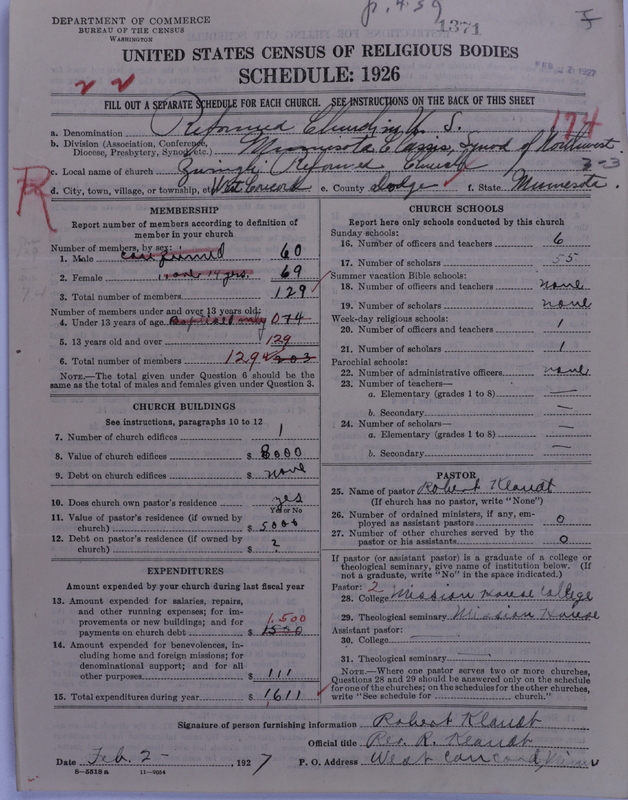 p. 439
1371
DEPARTMENT OF COMMERCE
BUREAU OF THE CENSUS
WASHINGTON
UNITED STATES CENSUS OF RELIGIOUS BODIES
SCHEDULE: 1926
FILL OUT A SEPARATE SCHEDULE FOR EACH CHURCH. SEE INSTRUCTIONS ON THE BACK OF THIS SHEET
174
a. Denomination Reformed Church in U. S.
b. Division (Association, Conference, Diocese, Presbytery, Synod, etc.) Minnesota Classis, Synod of Northwest
c. Local name of church Zwingli Reformed Church
3-3
d. City, town, village, or township, etc. West Concord e. County Dodge f. State Minnesota.
R
MEMBERSHIP
Report number of members according to definition of
member in your church
Number of members, by sex:
1. Male confirmed 60
2. Female over 14 yrs. 69
3. Total number of members 129
Number of members under and over 13 years old:
4. Under 13 years of age Baptized only 0 74
5. 13 years old and over 129
6. Total number of members 129 203
NOTE.—The total given under Question 6 should be the
same as the total of males and females given under Question 3.
CHURCH BUILDINGS
See instructions, paragraphs 10 to 12
7. Number of church edifices 1
8. Value of church edifices $ 8000
9. Debt on church edifices $ none
10. Does church own pastor's residence yes
Yes or No
11. Value of pastor's residence (if owned by
church) $ 5000
12. Debt on pastor's residence (if owned by
church) $ ?
EXPENDITURES
Amount expended by your church during last fiscal year
13. Amount expended for salaries, repairs,
and other running expenses; for im-
provements or new buildings; and for
payments on church debt $ 1,500 1550
14. Amount expended for benevolences, in-
cluding home and foreign missions; for
denominational support; and for all
other purposes $ 111
15. Total expenditures during year $ 1611
CHURCH SCHOOLS
Report here only schools conducted by this church
Sunday schools:
16. Number of officers and teachers 6
17. Number of scholars 55
Summer vacation Bible schools:
18. Number of officers and teachers none
19. Number of scholars none
Week-day religious schools:
20. Number of officers and teachers 1
21. Number of scholars 1
Parochial schools:
22. Number of administrative officers none
23. Number of teachers—
a. Elementary (grades 1 to 8) —
b. Secondary —
24. Number of scholars—
a. Elementary (grades 1 to 8) —
b. Secondary —
PASTOR
25. Name of pastor Robert Klaudt
(If church has no pastor, write "None")
26. Number of ordained ministers, if any, em-
ployed as assistant pastors 0
27. Number of other churches served by the
pastor or his assistants 0
If pastor (or assistant pastor) is a graduate of a college or
theological seminary, give name of institution below. (If
not a graduate, write "No" in the space indicated.)
Pastor: 2
28. College Mission House College
29. Theological seminary Mission House
Assistant pastor:
30. College —
31. Theological seminary —
NOTE.—Where one pastor serves two or more churches,
Questions 28 and 29 should be answered only on the schedule
for one of the churches; on the schedules for the other churches,
write "See schedule for ........ church."
Signature of person furnishing information Robert Klaudt
Official title Rev. R. Klaudt
Date Feb. 2 - , 1927 P. O. Address West Concord, Minn
8—5318 a 11—9054